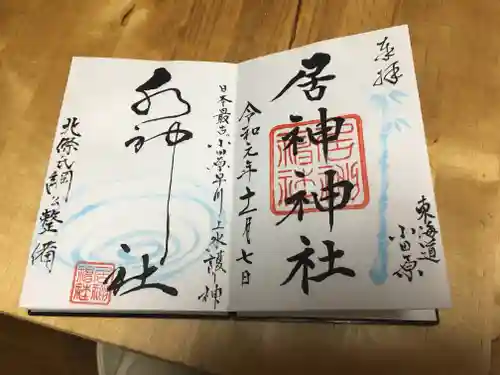 奉拝
東海道
小田原
居神神社
令和元年十一月七日
日本最古小田原早川上水護神
水神社
北條氏綱公整備